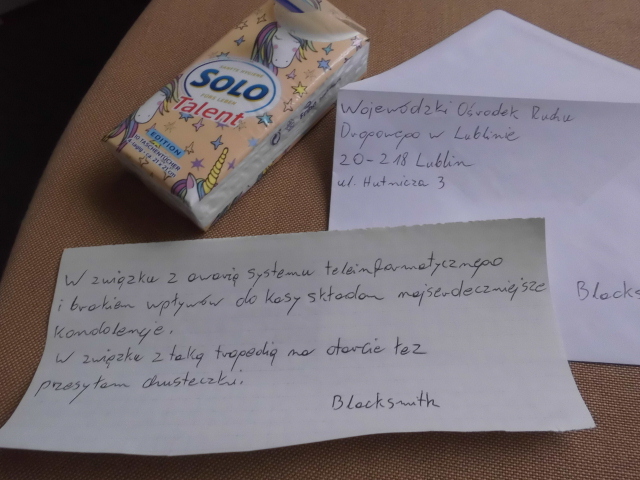 SOLO
Talent
EDITION
Wojewódzki Ośrodek Ruchu
Drogowego w Lublinie
20-218 Lublin
ul. Hutnicza 3
Blacks
W związku z awarią systemu teleinformatycznego
i brakiem wpływów do kasy składam najserdeczniejsze
kondolencje.
W związku z taką tragedią na otarcie łez
przesyłam chusteczki.
Blacksmith